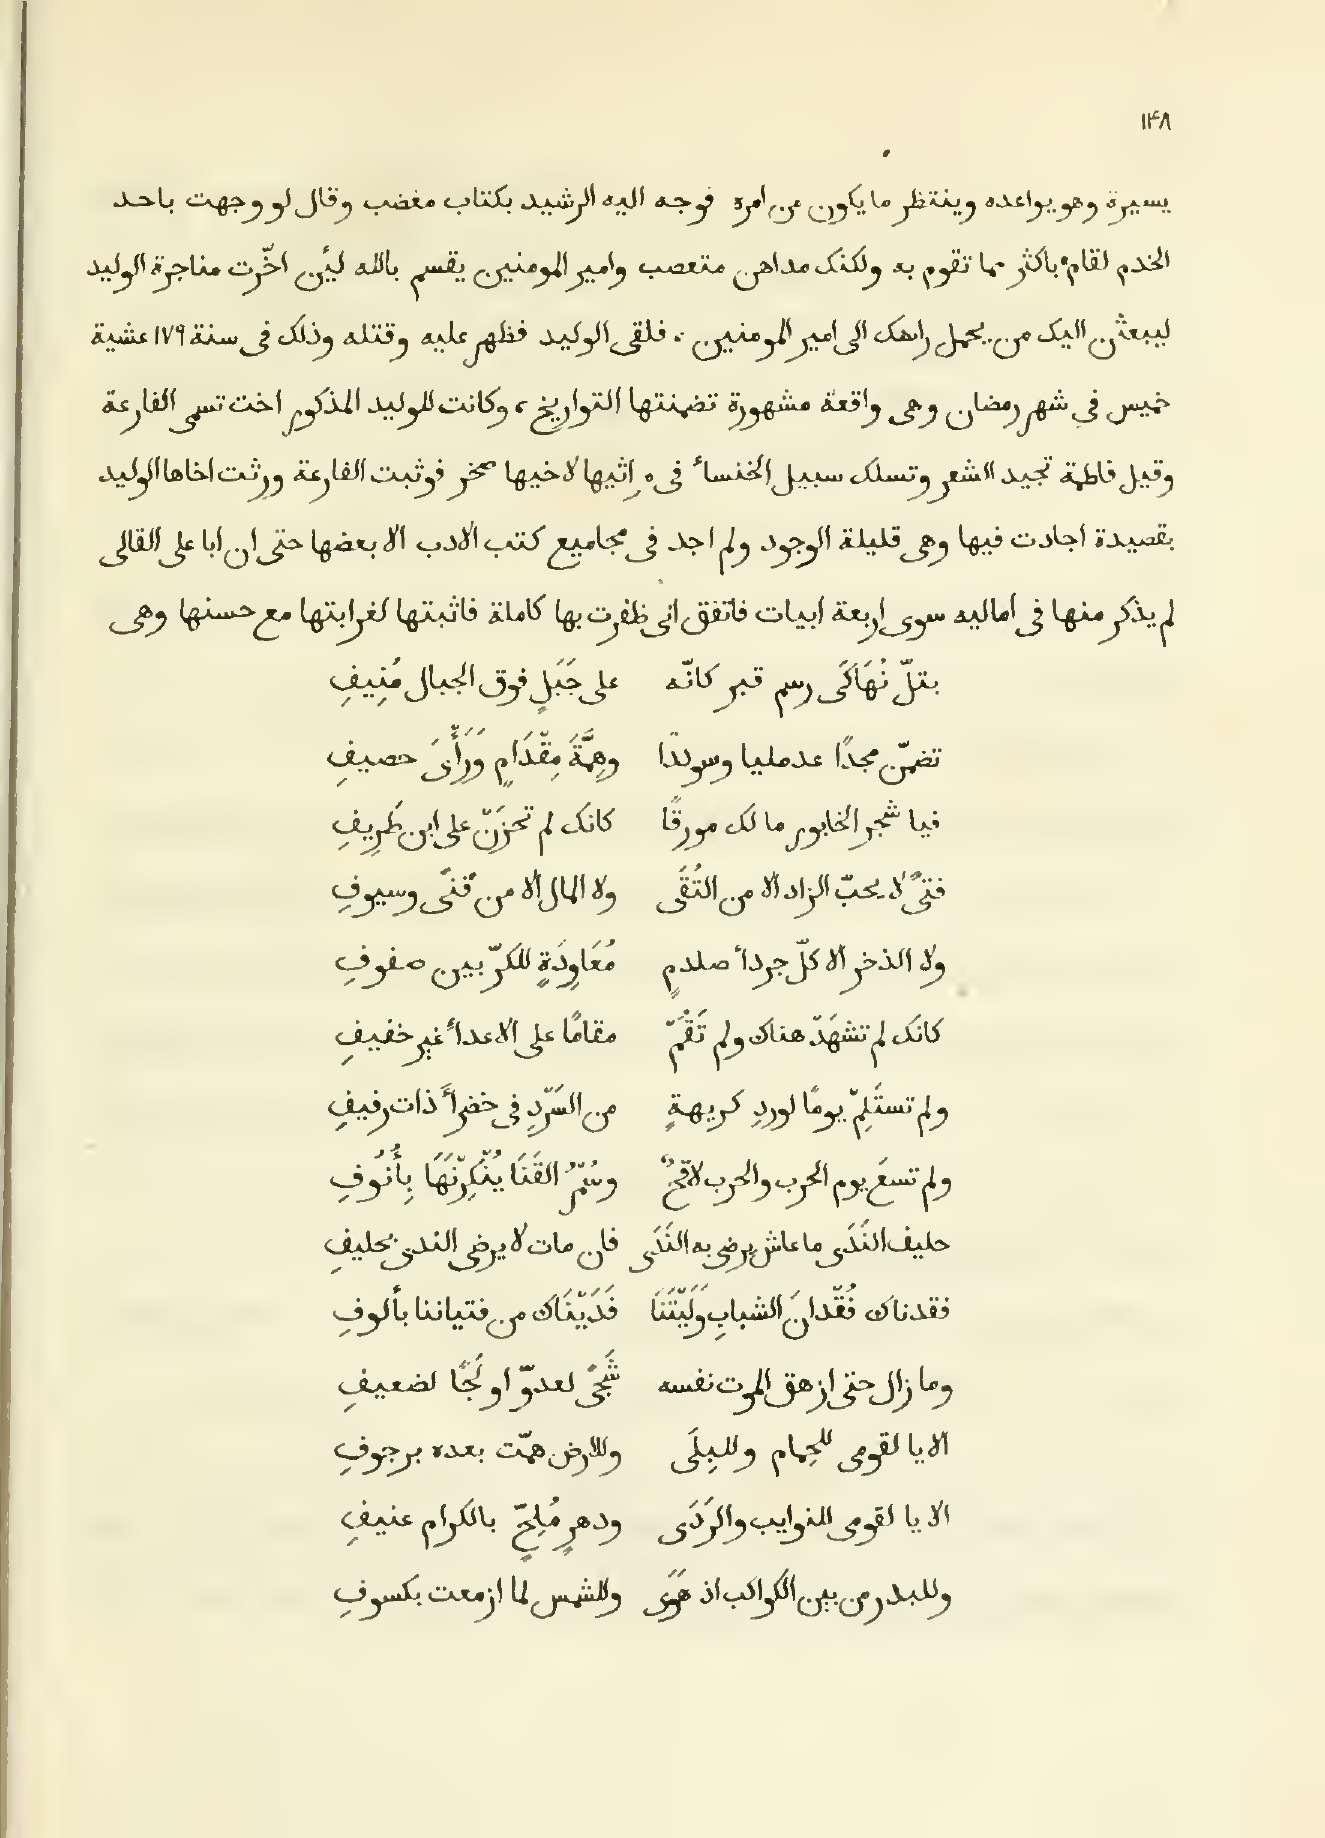 ١٤٨
يسيرة وهو يواعده وينتظر ما يكون من امره فوجه اليه الرشيد بكتاب مغضب وقال لو وجهت باحد
الخدم لقام باكثر مما تقوم به ولكنك مداهن متعصب وامير المومنين يقسم بالله لين اخّرت مناجزة الوليد
ليبعثن اليك من يحمل راسك الى امير المومنين ، فلقى الوليد فظهر عليه وقتله وذلك فى سنة ١٧٩ عشية
خميس فى شهر رمضان وهى واقعة مشهورة تضمنتها التواريخ ، وكانت للوليد المذكور اخت تسمى الفارعة
وقيل فاطمة تجيد الشعر وتسلك سبيل الخنساء فى مراثيها لاخيها صخر فوثبت الفارعة ورثت اخاها الوليد
بقصيدة اجادت فيها وهى قليلة الوجود ولم اجد فى مجاميع كتب الادب الا بعضها حتى ان ابا على القالى
لم يذكر منها فى اماليه سوى اربعة ابيات فاتفق انى ظفرت بها كاملة فاثبتها لغرابتها مع حسنها وهى
بتلّ نُهَاكَى رسم قبر كانّه على جَبَلٍ فوق الجبال مُنِيفِ
تضمّن مجدًا عدمليا وسوددًا وهِمَّةَ مِقْدَامٍ وَرَأْىَ حصيفِ
فيا شجر الخابور ما لك مورقًا كانك لم تحزَنْ على ابن طَرِيفِ
فتىً لا يحبّ الزاد الا من التُقَى ولا المال الا من قنًى وسيوفِ
ولا الذخر الا كلّ جرداء صلدمٍ مُعَاوِدَةٍ للكرّ بين صفوفِ
كانك لم تشهَدْ هناك ولم تَقُمْ مقامًا على الاعداء غير خفيفِ
ولم تستَلِمْ يومًا لوردِ كريهةٍ من السَرْدِ فى خضراء ذات رفيفِ
ولم تسعَ يوم الحرب والحرب لاقحٌ وسُمْرُ القَنَا يُنْكِزْنَهَا بِأُنُوفِ
حليف النَدَى ما عاش يرضى به النَدَى فان مات لا يرضى الندى بحليفِ
فقدناك فُقْدانَ الشبابِ وَلَيْتَنَا فَدَيْنَاك من فتياننا بألوفِ
وما زال حتى ازهق الموت نفسه شَجًى لعدوّ او لَجًا لضعيفِ
الا يا لقومى للحِمام وللبِلَى وللارض همّت بعده برجوفِ
الا يا لقومى للنوايب والرَدَى ودهرٍ مُلِحٍّ بالكرام عنيفِ
وللبدر من بين الكواكب اذ هَوَى وللشمس لما ازمعت بكسوفِ